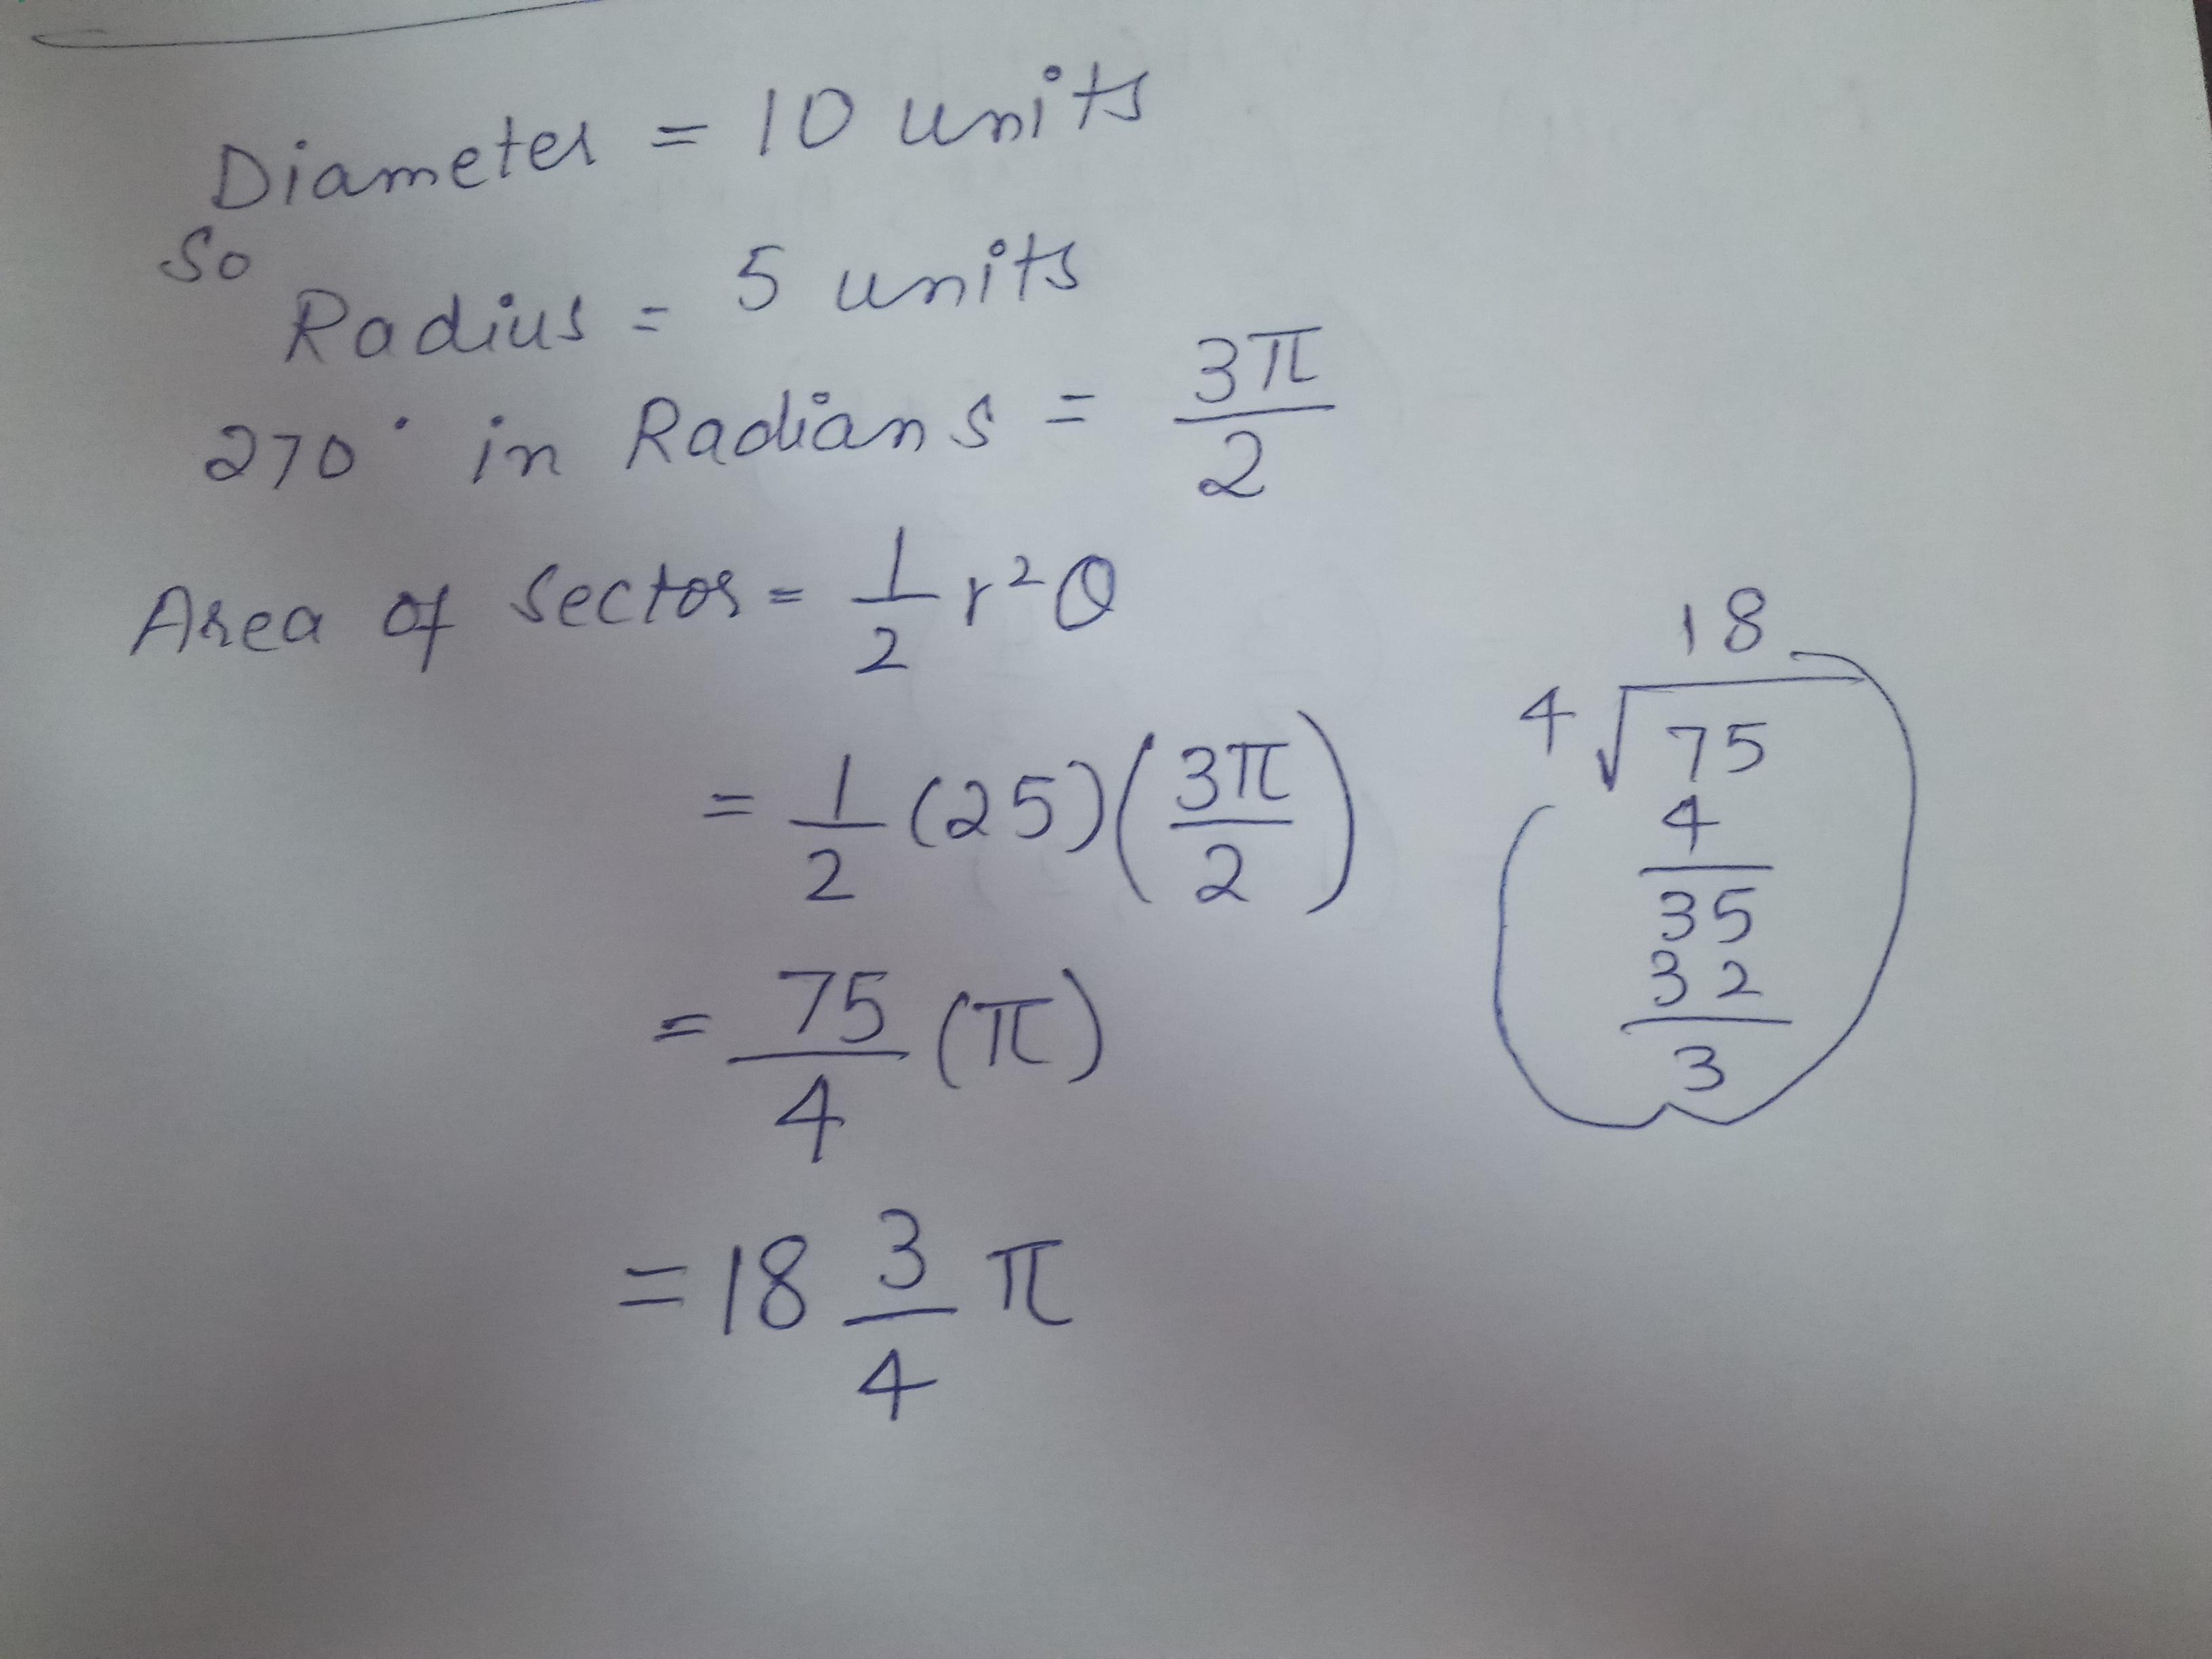 Diameter = 10 units
So
Radius = 5 units
270° in Radians = 3π/2
Area of Sector = 1/2 r²θ
= 1/2 (25)(3π/2)
= 75/4 (π)
= 18 3/4 π
18
4√75
4
35
32
3